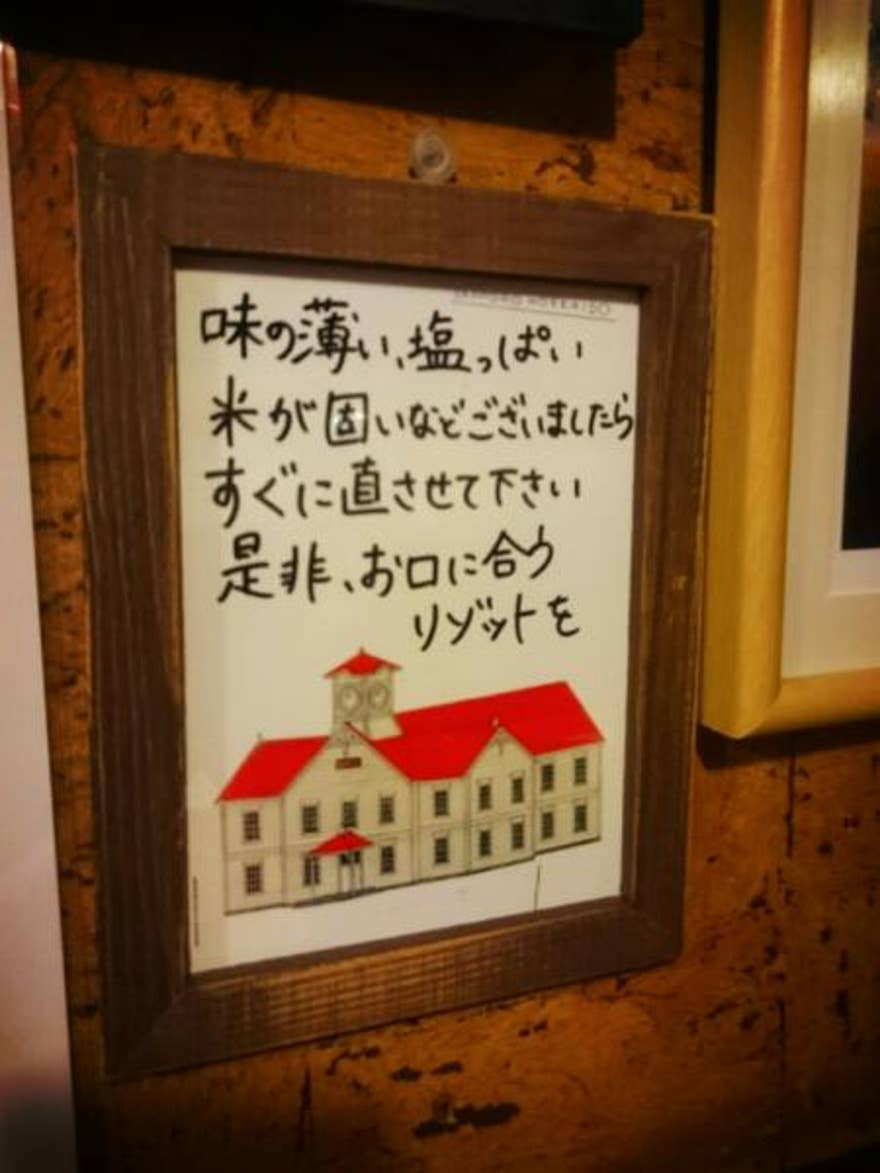 HOKKAIDO
味の薄い、塩っぱい
米が固いなどございましたら
すぐに直させて下さい
是非、お口に合う
リゾットを